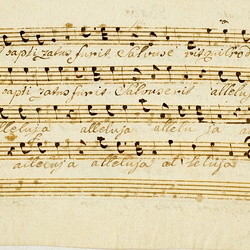 baptizatus fueris Salvus eris qui crod
baptizatus fueris Salvus eris alleluj
alleluja alleluja allelu ja al
alleluja alleluja al leluja